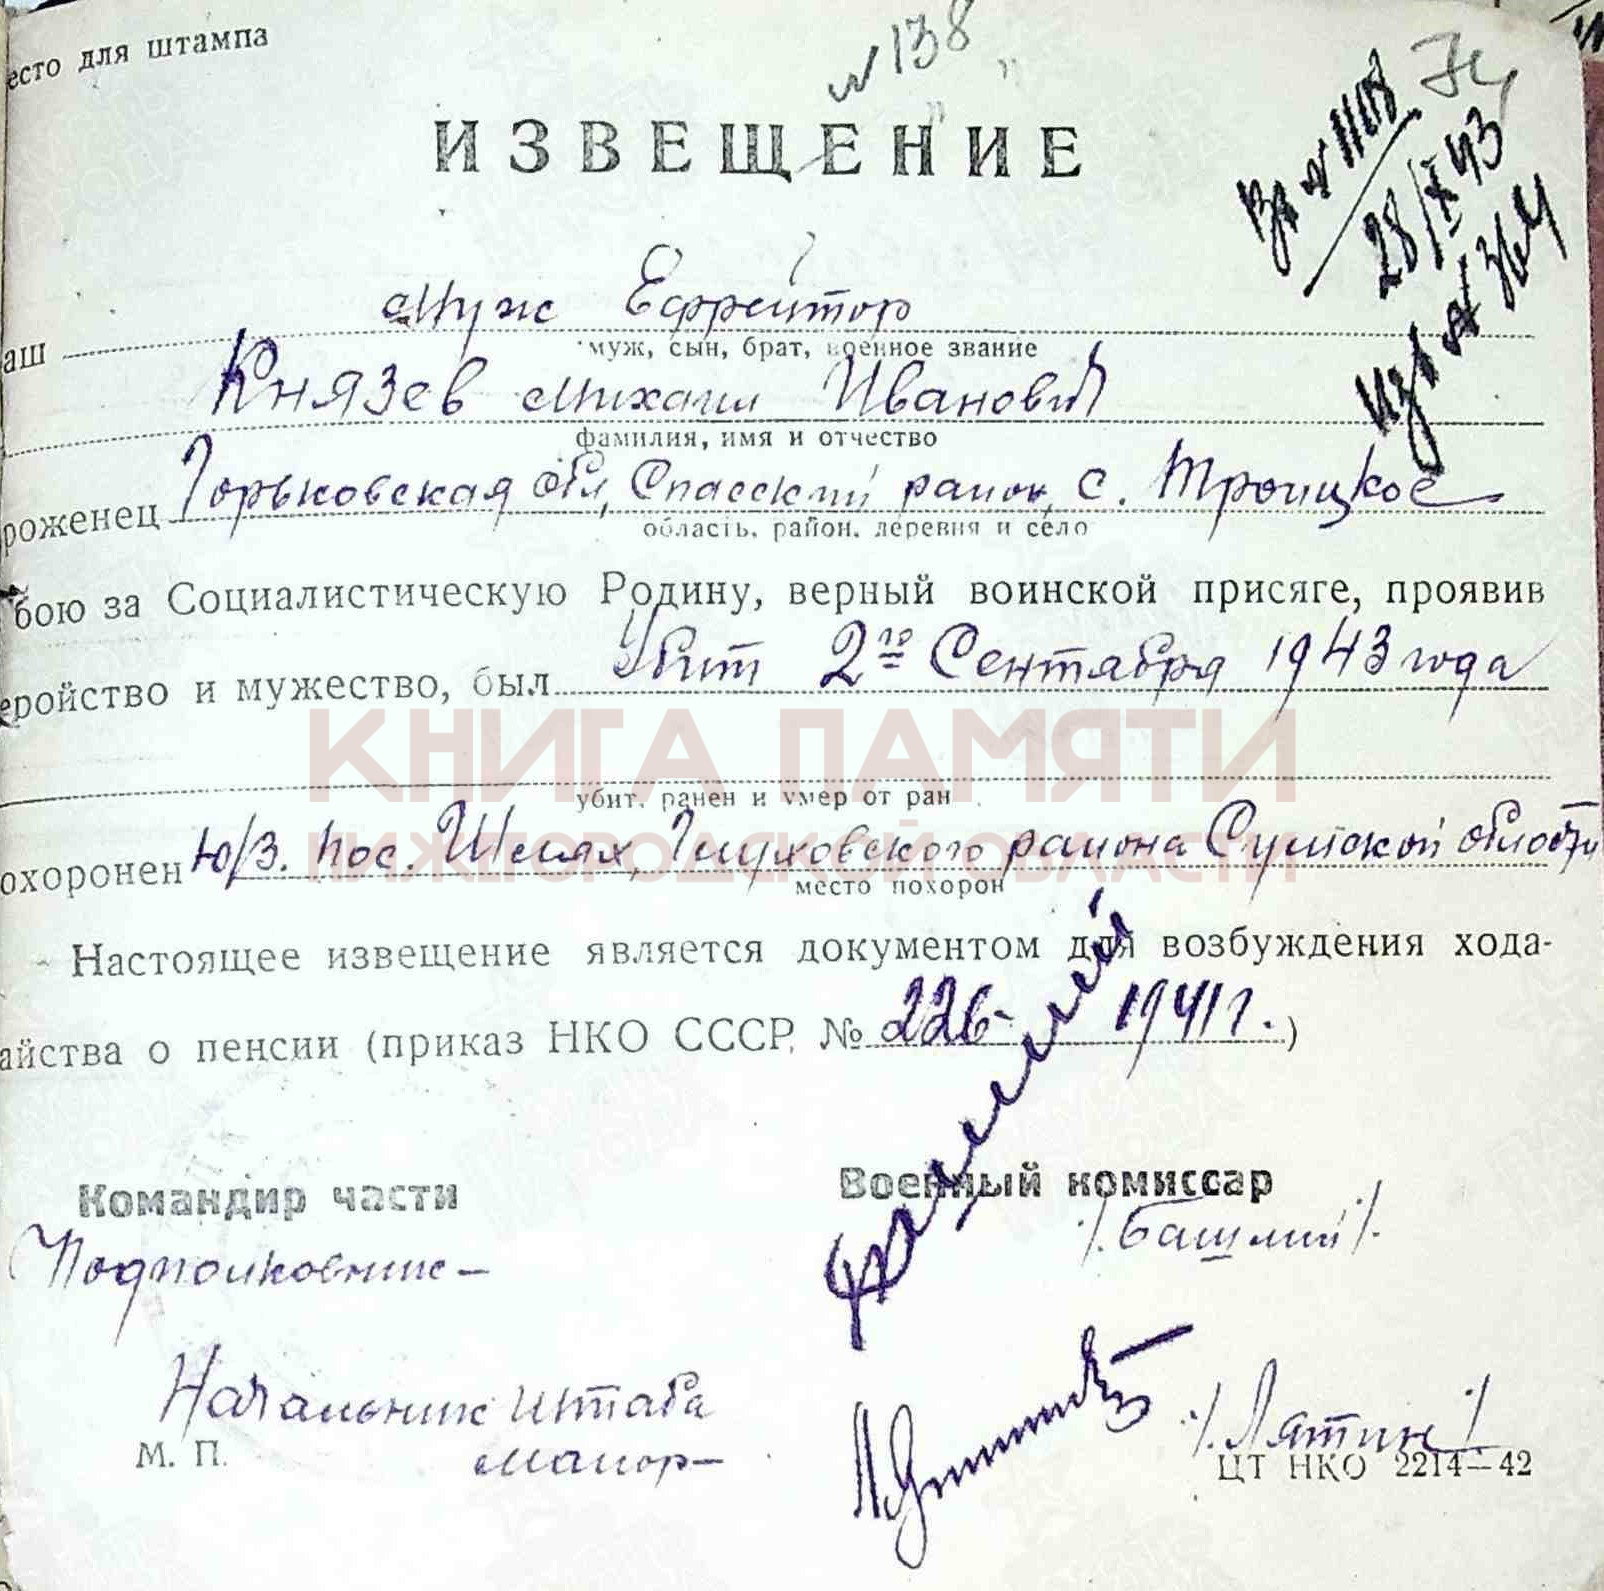 есто для штампа
№ 138
74
ИЗВЕЩЕНИЕ
Вх № 1118
28/IX 43
Изв № 364
аш муж Ефрейтор
муж, сын, брат, военное звание
Князев Михаил Иванович
фамилия, имя и отчество
роженец Горьковская обл, Спасский район, с. Троицкое
область, район, деревня и село
бою за Социалистическую Родину, верный воинской присяге, проявив
еройство и мужество, был Убит 2го Сентября 1943 года
КНИГА ПАМЯТИ
убит, ранен и умер от ран
НИЖЕГОРОДСКОЙ ОБЛАСТИ
охоронен ю/з. пос. Шлях, Глуховского района Сумской области
место похорон
Настоящее извещение является документом для возбуждения хода-
айства о пенсии (приказ НКО СССР № 226- 1941г.)
Командир части
Военный комиссар
Подполковник-
/. Башлий /.
Начальник штаба
майор-
/. Лятин /
М. П.
ЦТ НКО 2214—42